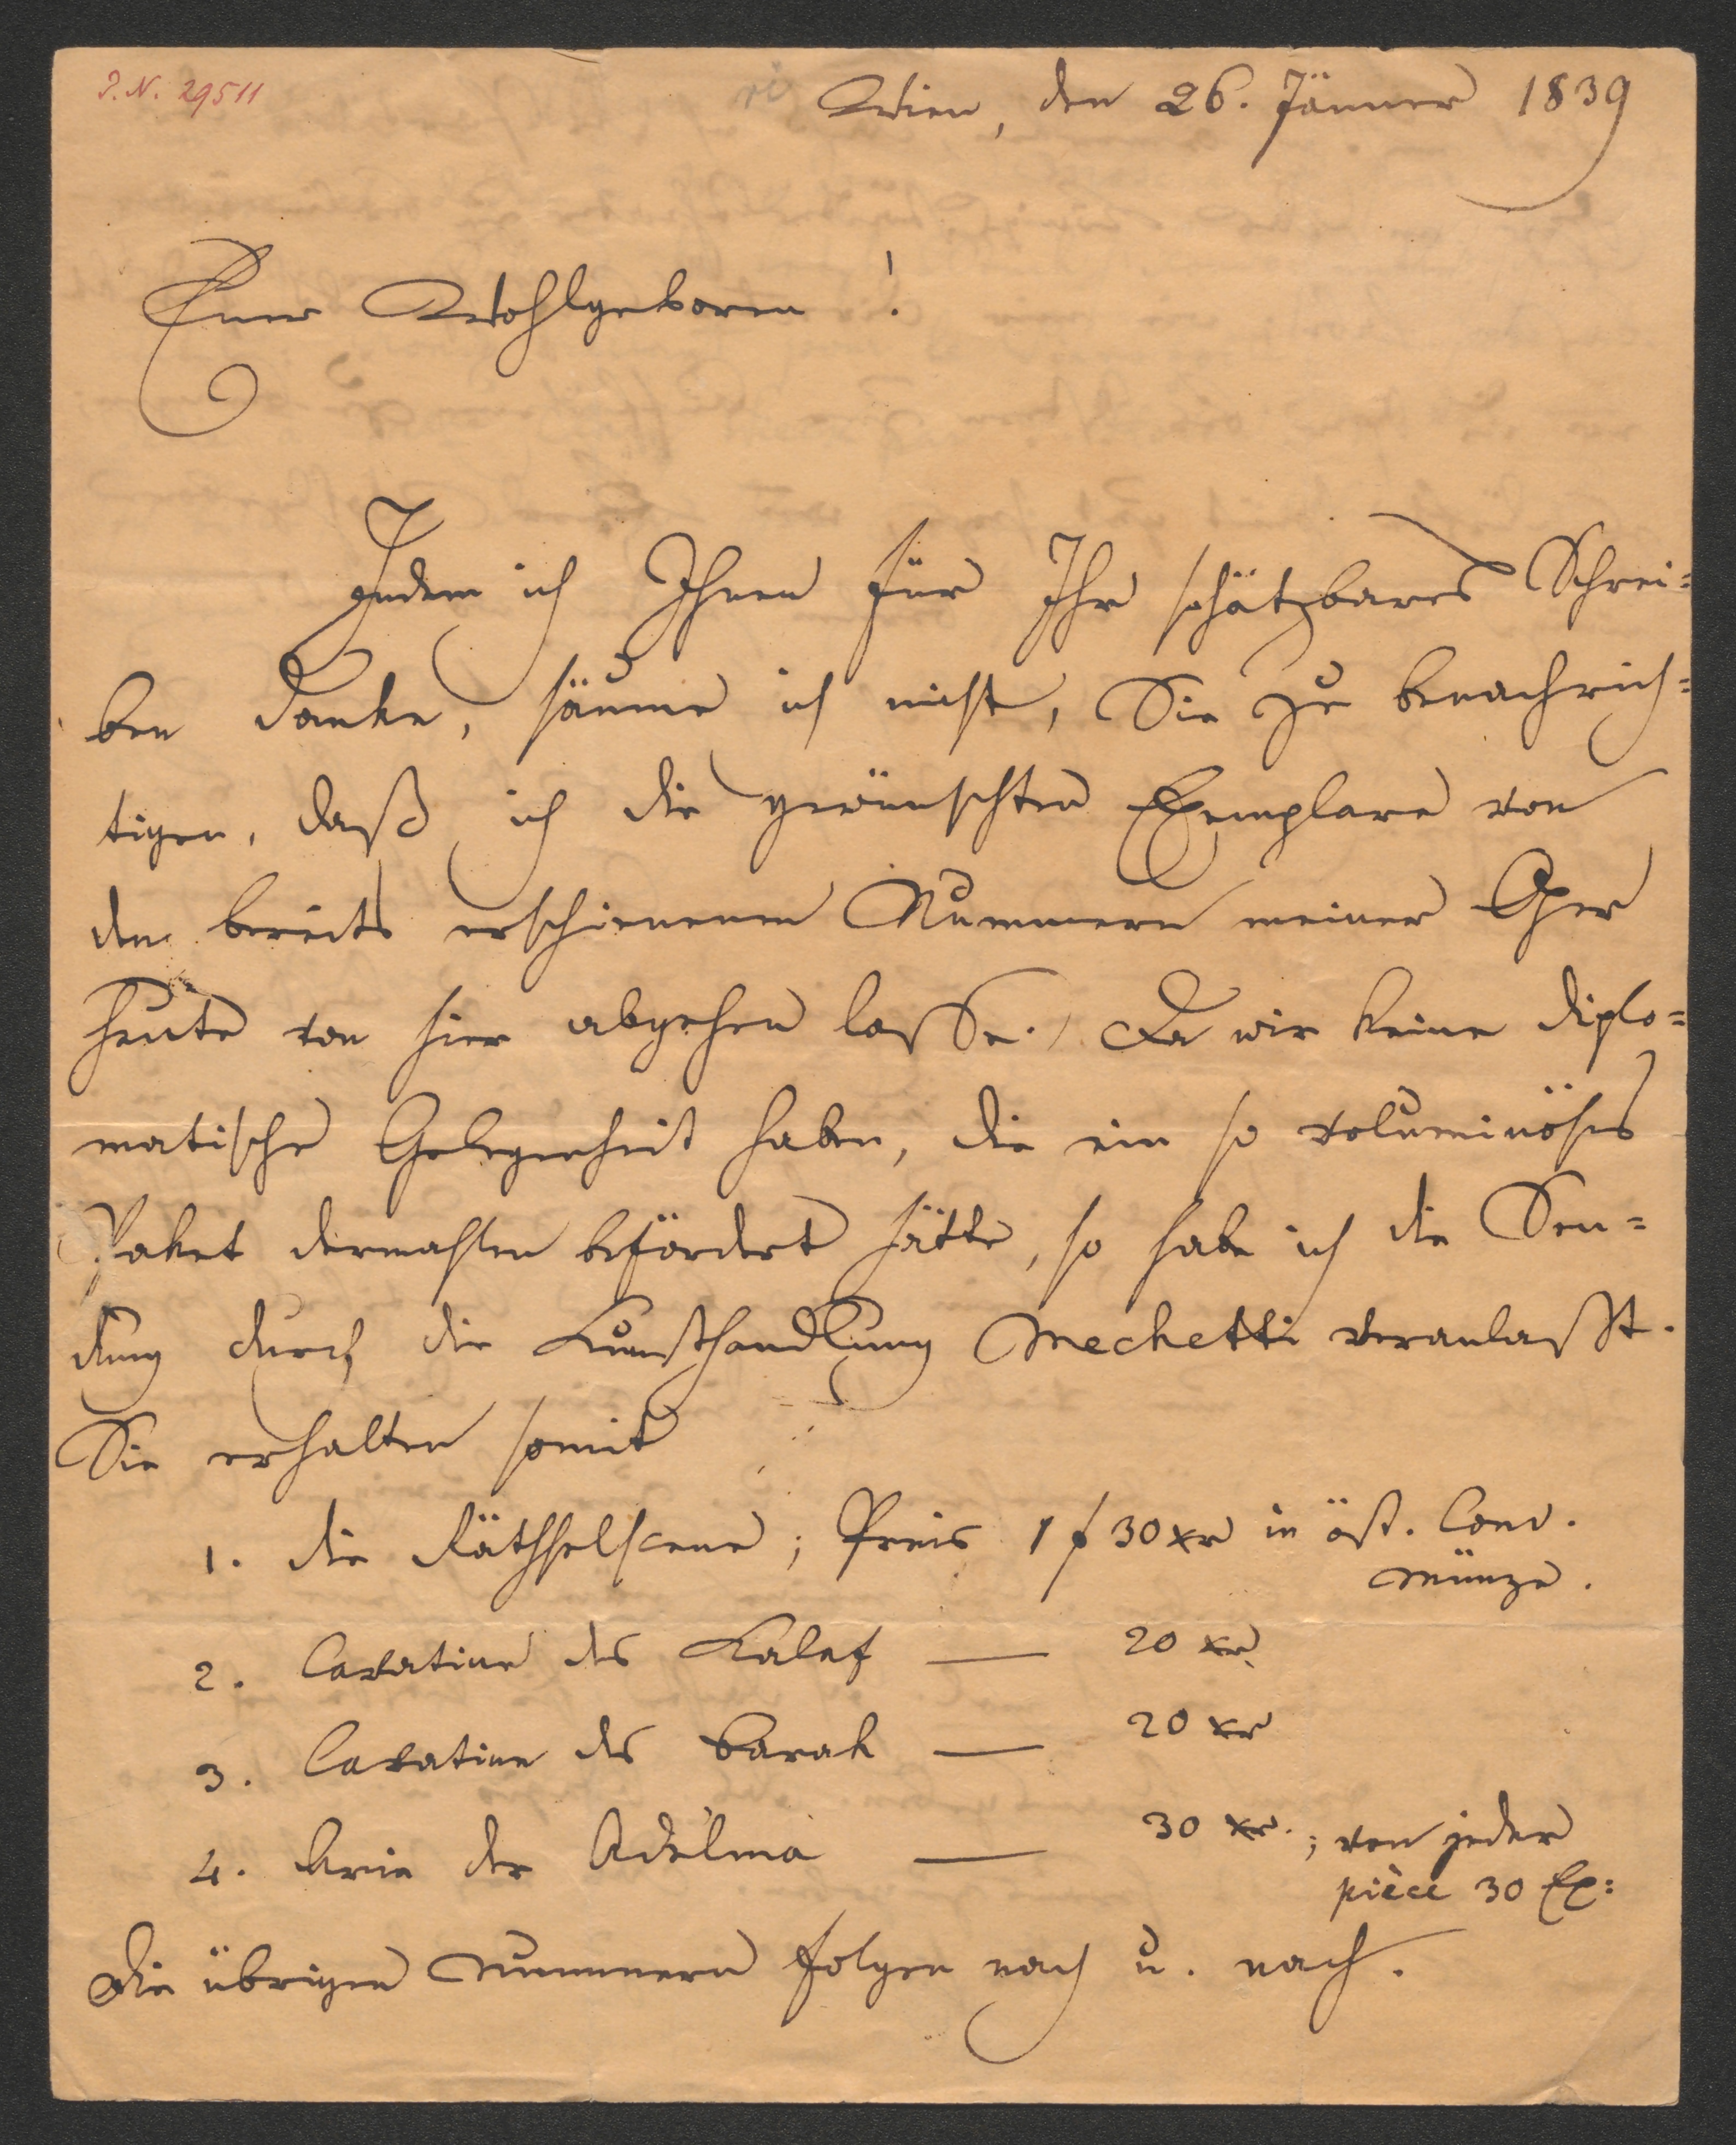 I. N. 29511
Wien, den 26. Jänner 1839
Euer Wohlgeboren!
Indem ich Ihnen für Ihr schätzbares Schrei=
ben danke, säume ich nicht, Sie zu benachrich=
tigen, daß ich die gewünschten Exemplare von
den bereits erschienenen Nummern meiner Oper
heute von hier abgehen lasse. Da wir keine diplo=
matische Gelegenheit haben, die ein so voluminöses
Paket dermahlen befördert hätte, so habe ich die Sen=
dung durch die Kunsthandlung Mechetti veranlaßt.
Sie erhalten somit
1. die Räthselscene; Preis 1 f 30 xr in öst. Conv.
Münze.
2. Cavatine des Kalaf — 20 xr.
3. Cavatine des Barak — 20 xr
4. Arie der Adelma — 30 xr.; von jeder
pièce 30 Ex:
Die übrigen Nummern folgen nach u. nach.